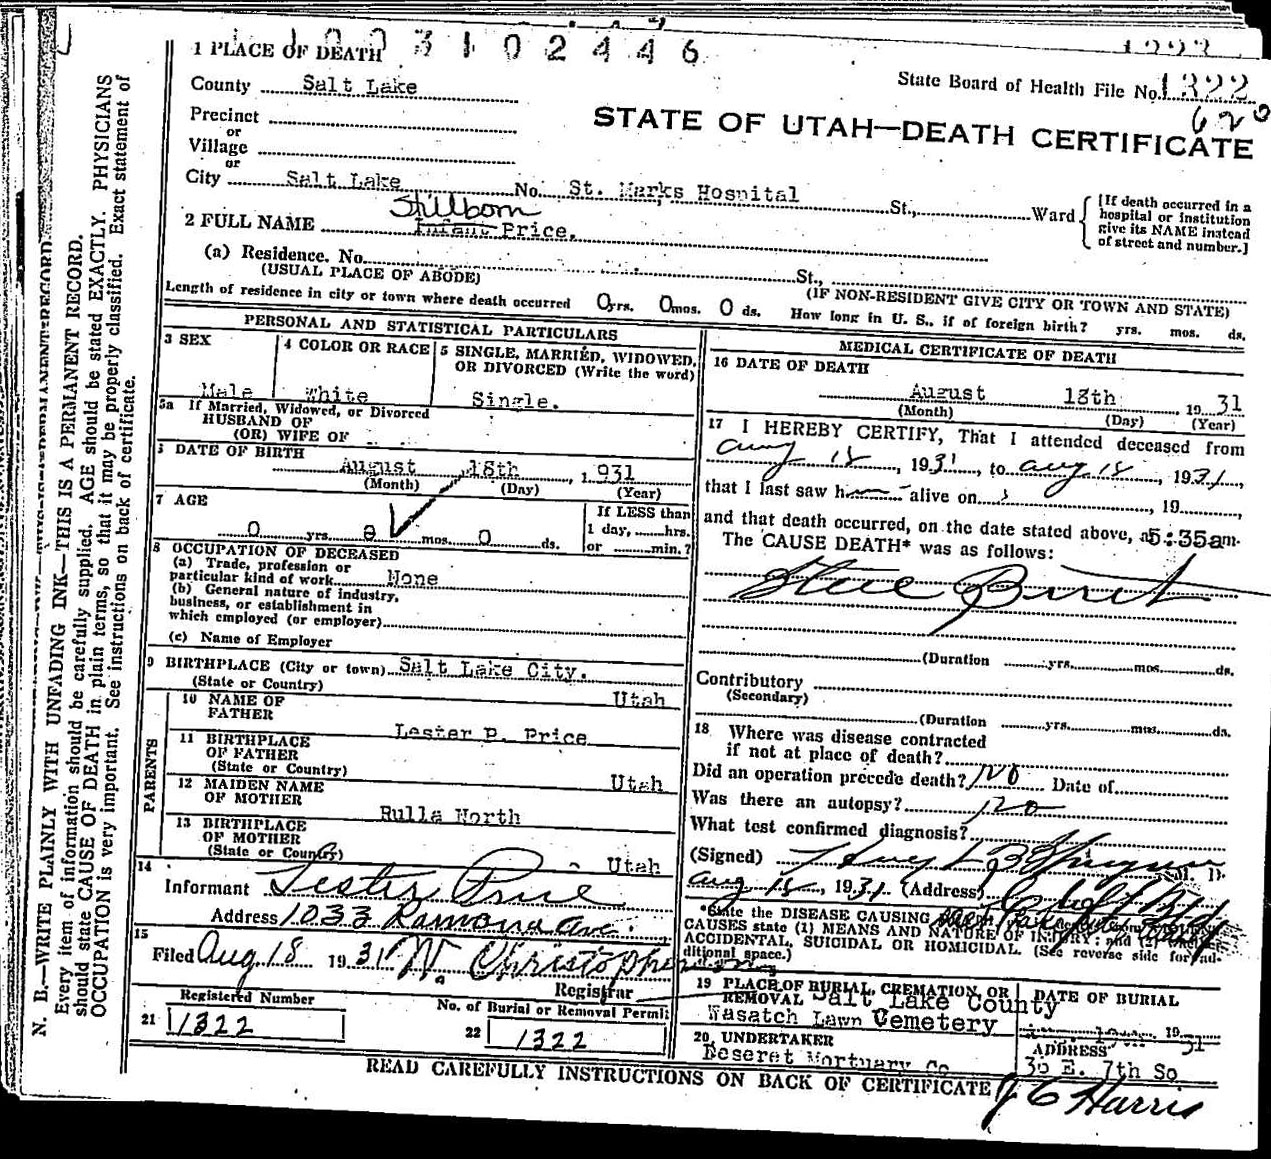 3 1 0 2 4 4 6
1 PLACE OF DEATH
State Board of Health File No. 1322
620
County Salt Lake
STATE OF UTAH—DEATH CERTIFICATE
Precinct
or
Village
or
City Salt Lake No. St. Marks Hospital St., Ward
[If death occurred in a hospital or institution give its NAME instead of street and number.]
Stillborn
2 FULL NAME Infant Price.
(a) Residence. No. St.,
(USUAL PLACE OF ABODE) (IF NON-RESIDENT GIVE CITY OR TOWN AND STATE)
Length of residence in city or town where death occurred 0 yrs. 0 mos. 0 ds. How long in U. S., if of foreign birth? yrs. mos. ds.
PERSONAL AND STATISTICAL PARTICULARS
3 SEX
Male
4 COLOR OR RACE
White
5 SINGLE, MARRIED, WIDOWED, OR DIVORCED (Write the word)
Single.
5a If Married, Widowed, or Divorced
HUSBAND OF
(OR) WIFE OF
DATE OF BIRTH
August 18th, 1931
(Month) (Day) (Year)
7 AGE
0 yrs. 0 mos. 0 ds.
If LESS than
1 day, hrs.
or min.?
8 OCCUPATION OF DECEASED
(a) Trade, profession or
particular kind of work None
(b) General nature of industry,
business, or establishment in
which employed (or employer)
(c) Name of Employer
9 BIRTHPLACE (City or town) Salt Lake City.
(State or Country) Utah
PARENTS
10 NAME OF
FATHER Lester P. Price
11 BIRTHPLACE
OF FATHER
(State or Country) Utah
12 MAIDEN NAME
OF MOTHER Rulla North
13 BIRTHPLACE
OF MOTHER
(State or Country) Utah
14
Informant Lester Price
Address 1033 Ramona Ave.
15
Filed Aug 18 1931 W. Christophe
Registrar
Registered Number
21 1322
No. of Burial or Removal Permit
22 1322
MEDICAL CERTIFICATE OF DEATH
16 DATE OF DEATH
August 18th, 1931
(Month) (Day) (Year)
17 I HEREBY CERTIFY, That I attended deceased from
Aug 18, 1931, to Aug 18, 1931,
that I last saw h alive on , 19 ,
and that death occurred, on the date stated above, at 5:35am.
The CAUSE DEATH* was as follows:
Still Birth
(Duration yrs. mos. ds.
Contributory
(Secondary)
(Duration yrs. mos. ds.
18 Where was disease contracted
if not at place of death?
Did an operation precede death? no Date of
Was there an autopsy? no
What test confirmed diagnosis?
(Signed) M. D.
Aug 18, 1931 (Address)
*State the DISEASE CAUSING
CAUSES state (1) MEANS AND NATURE OF INJURY; and (2)
ACCIDENTAL, SUICIDAL OR HOMICIDAL. (See reverse side for additional space.)
19 PLACE OF BURIAL, CREMATION, OR
REMOVAL Salt Lake County
Wasatch Lawn Cemetery
DATE OF BURIAL
1931
20 UNDERTAKER
Deseret Mortuary Co
ADDRESS
36 E. 7th So
READ CAREFULLY INSTRUCTIONS ON BACK OF CERTIFICATE
J C Harris
N. B.—WRITE PLAINLY WITH UNFADING INK—THIS IS A PERMANENT RECORD.
Every item of information should be carefully supplied. AGE should be stated EXACTLY. PHYSICIANS
should state CAUSE OF DEATH in plain terms, so that it may be properly classified. Exact statement of
OCCUPATION is very important. See instructions on back of certificate.